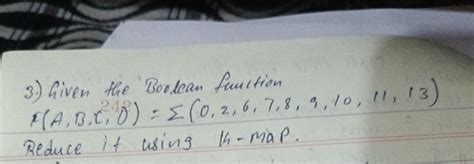 3.) Given the Boolean function
F(A,B,C,D) = Σ(0,2,6,7,8,9,10,11,13)
Reduce it using K-map.